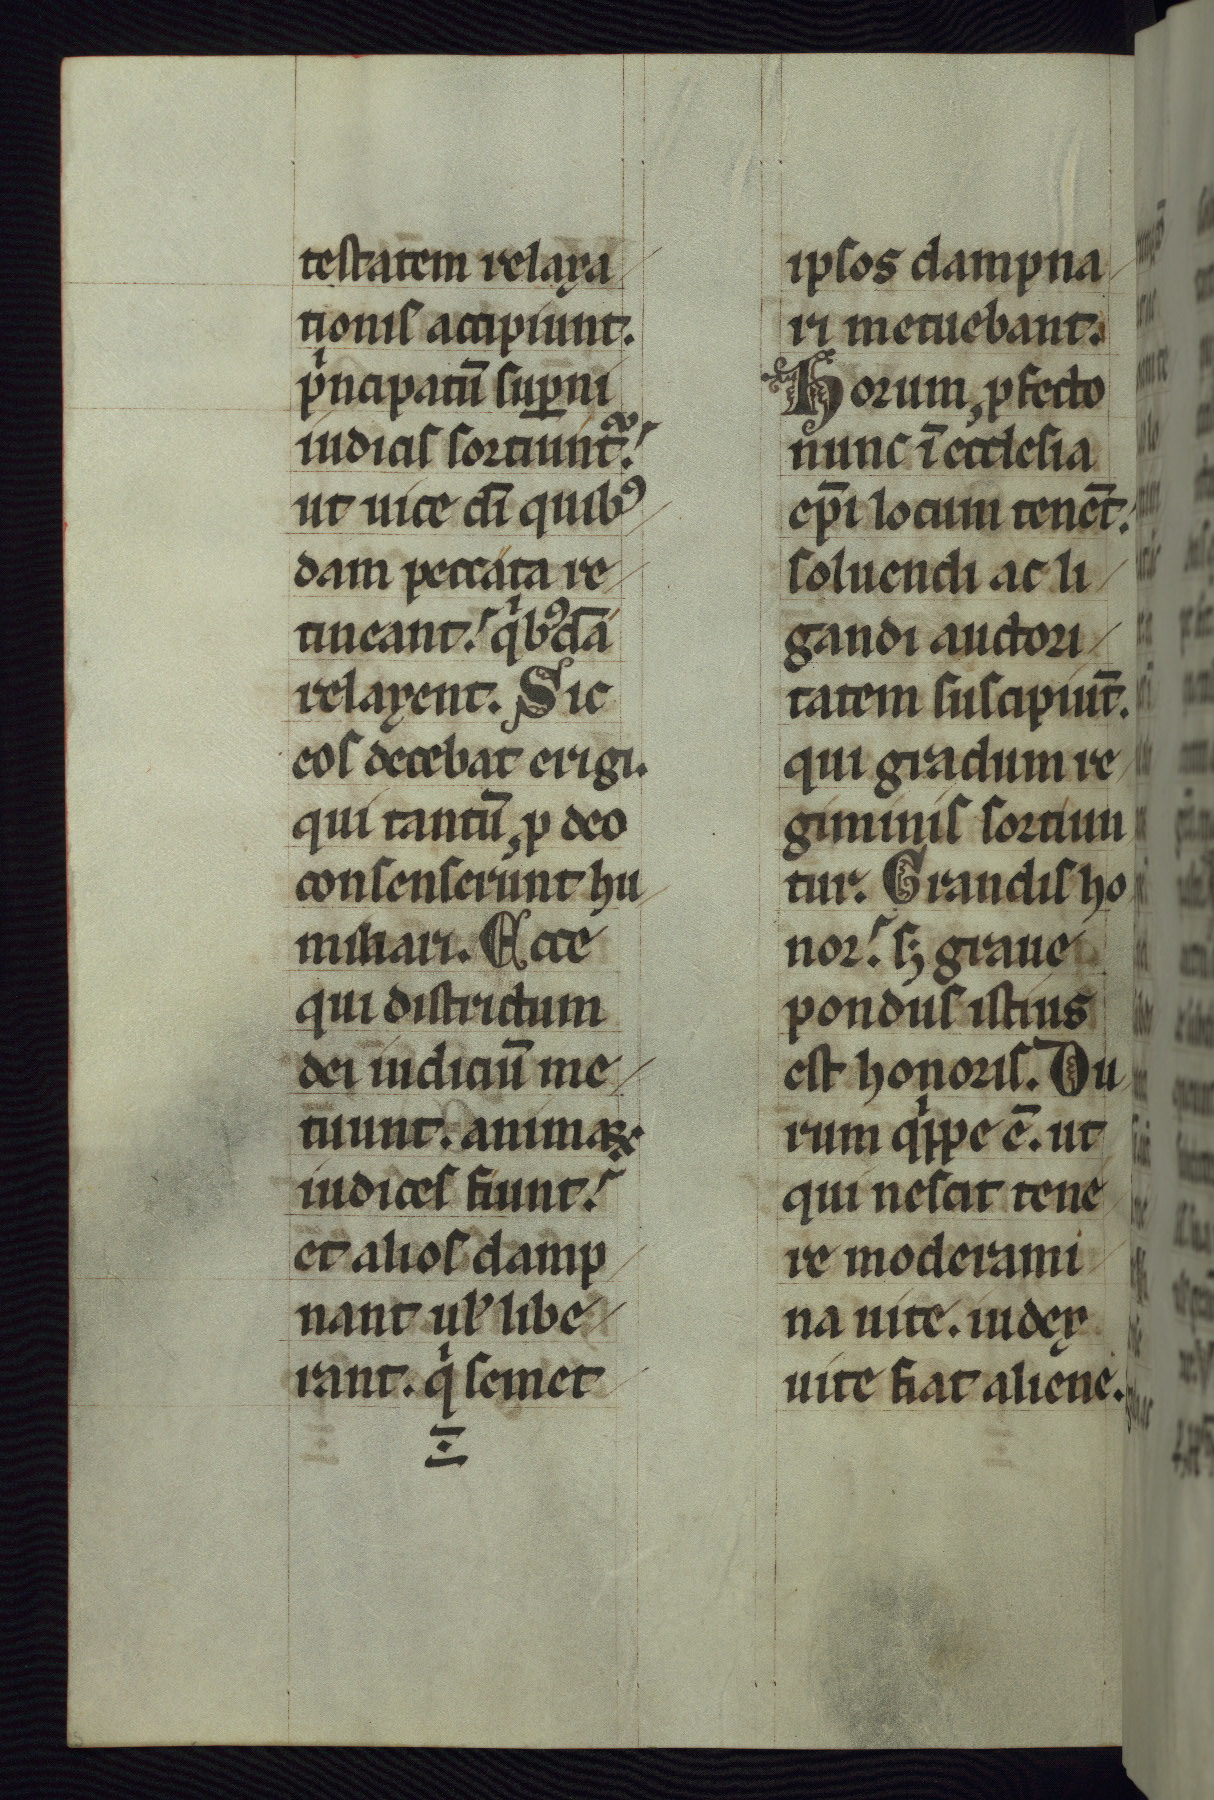 testatem relaxa
tionis accipiunt.
pͥncipatū suꝑni
iudicis sortiunt᷑.
ut uice dī quibꝰ
dam peccata re
tineant. qͥbꝰdā
relaxent. Sic
eos decebat erigi.
qui tantū ꝓ deo
consenserunt hu
miliari. Ecce
qui districtum
dei iudiciū me
tuunt. animaꝝ
iudices fiunt.
et alios damp
nant ul̕ libe
rant. qͥ semet
ipsos dampna
ri metuebant.
Horum ꝓfecto
nunc ī ecclesia
ep̄i locum tenēt.
soluendi ac li
gandi auctori
tatem suscipiūt.
qui gradum re
giminis sortiun
tur. Grandis ho
nor. sꝫ graue
pondus istius
est honoris. Du
rum qͥppe ē. ut
qui nescit tene
re moderami
na uite. iudex
uite fiat aliene.